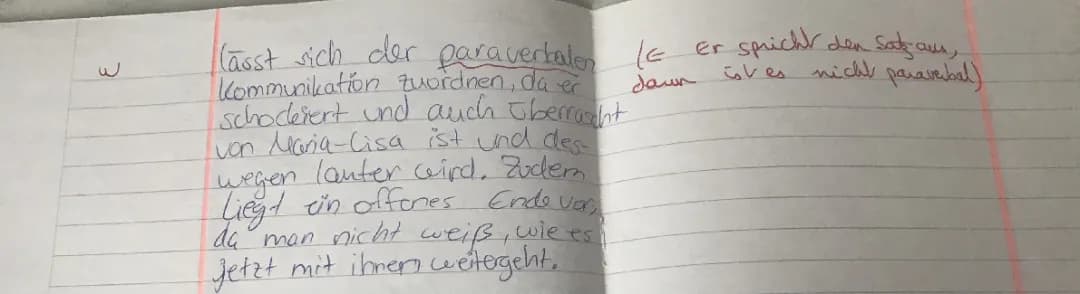 w
lässt sich der paraverbalen
Kommunikation zuordnen, da er
schockiert und auch überrascht
von Maria-Lisa ist und des-
wegen lauter wird. Zudem
liegt ein offenes Ende vor,
da man nicht weiß, wie es
jetzt mit ihnen weitergeht.
Er spricht den Satz aus,
dann ist es nicht paraverbal)